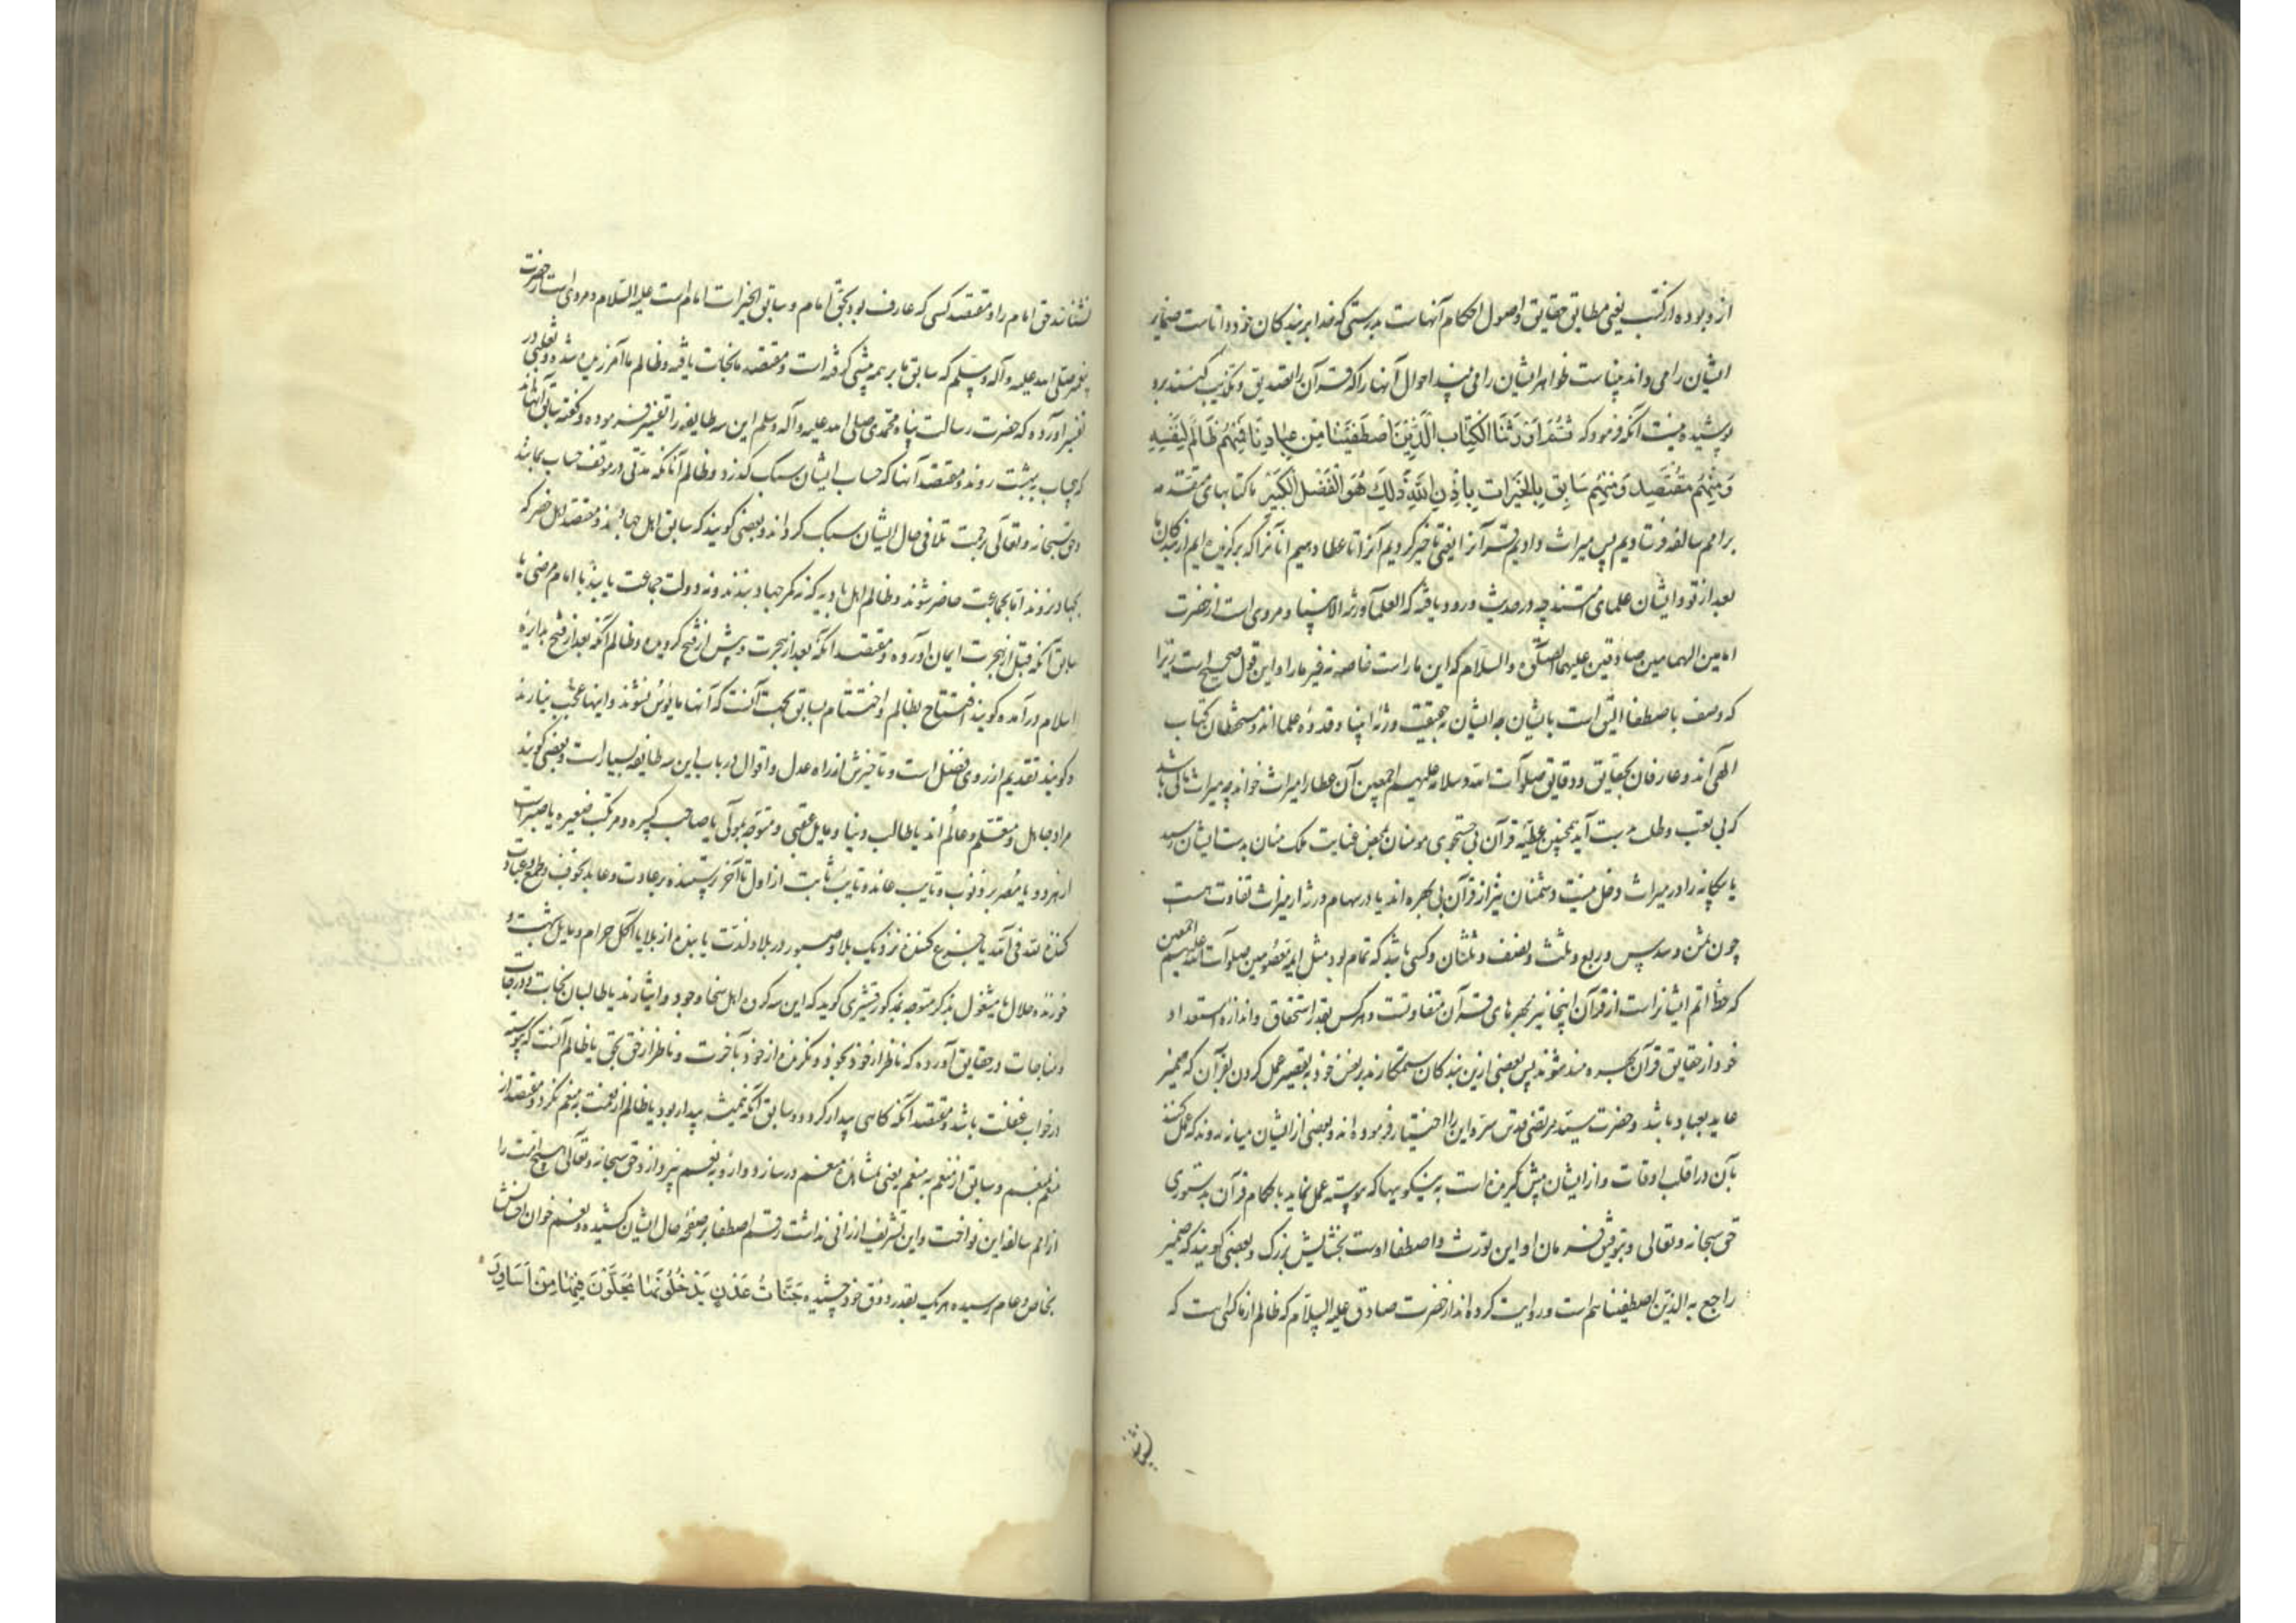 از و بوده از کتب یعنی مطابق حقایق و اصول احکام آنهاست بدرستی که خدا بر بندکان خود داناست ضمایر
ایشان را می داند بیناست ظواهر ایشان را می بیند احوال آنها را که قرآن را تصدیق و تکذیب کنند برو
پوشیده نیست آنکه فرمود که ثُمَّ اَوْرَثْنَا الْکِتَابَ الَّذِیْنَ اصْطَفَیْنَا مِنْ عِبَادِنَا فَمِنْهُمْ ظَالِمٌ لِنَفْسِهِ
وَ مِنْهُمْ مُقْتَصِدٌ وَ مِنْهُمْ سَابِقٌ بِالْخَیْرَاتِ بِاِذْنِ اللهِ ذَلِکَ هُوَ الْفَضْلُ الْکَبِیْرُ ما کتابهای متقدمه
بر امم سالفه فرستادیم پس میراث دادیم قرآن را یعنی تاخیر کردیم آنرا تا عطا دهیم آنانرا که برکزیده ایم از بندکان ما
بعد از تو و ایشان علمای امتند چه در حدیث ورود یافته که العلمآ ورثه الانبیا و مروی است از حضرت
امامین الهمامین صادقین علیهما الصلوة والسلام که این ما راست خاصه نه غیر ما را و این قول صحیح است زیرا
که وصف باصطفا الیق است بایشان چه ایشان بحقیقت ورثه انبیا و قدوه علما اند و مستحفظان کتاب
الهی اند و عارفان بحقایق و دقایق صلوات الله و سلامه علیهم اجمعین آن عطا را میراث خواند چه میراث مالی باشد
که بی تعب و طلب بدست آید همچنین عطیه قرآن بی جستجوی مومنان بمحض عنایت ملک منان بدست ایشان رسید
یا بیکانه را در میراث دخل نیست دشمنان نیز از قرآن بی بهره اند یا در سهام ورثه از میراث تفاوت هست
چون ثمن و سدس و ربع و ثلث و نصف و ثلثان و کسی باشد که تمام بود مثل ایمه معصومین صلوات الله علیهم اجمعین
که حظ اتم ایشانراست از قرآن اینجا نیز بهره های قرآن متفاوتست و هر کس بقدر استحقاق و اندازه استعداد
خود از حقایق قرآن بهره مند شوند پس بعضی ازین بندکان ستمکارند بر نفس خود به تقصیر عمل کردن بقرآن که ضمیر
عاید بعباد باشد و حضرت سید مرتضی قدس سره این را اختیار فرموده اند و بعضی از ایشان میانه روند که عمل کنند
بآن در اغلب اوقات و از ایشان پیش گیرنده است به نیکوییها که پیوسته عمل نماید باحکام قرآن بدستوری
حق سبحانه و تعالی و بتوفیق فرمان او این توریث و اصطفا اوست بخشایش بزرک و بعضی کویند که ضمیر
راجع به الذین اصطفینا هم است و روایت کرده اند از حضرت صادق علیه السلام که ظالم از ما کسی است که
نشناسد حق امام را و مقتصد کسی که عارف بود بحق امام و سابق الخیرات امام است علیه السلام و مروی است از حضرت
پیغمبر صلی الله علیه و آله و سلم که سابق ما بر همه پیشی گرفته است و مقتصد ما نجات یافته و ظالم ما آمرزیده شده و ثعلبی در
تفسیر آورده که حضرت رسالت پناه محمدی صلی الله علیه و آله وسلم این سه طایفه را تفسیر فرموده و کفته سابق آنهااند
که بیحساب به بهشت روند و مقتصد آنها که حساب ایشان سبک کذرد و ظالم آنانکه مدتی در موقف حساب بمانند
و حق سبحانه و تعالی برحمت تلافی حال ایشان سبک کرداند و بعضی کویند که سابق اهل جهادند و مقتصد اهل حضر که
بجهاد نروند اما بجماعت حاضر شوند و ظالم اهل بادیه که نه کمر جهاد بندند و نه دولت جماعت یابند با امام مرضی یا
سابق آنکه قبل از هجرت ایمان آورده و مقتصد آنکه بعد از هجرت و پیش از فتح کرویده و ظالم آنکه بعد از فتح بدایره
اسلام درآمده کویند افتتاح بظالم و اختتام بسابق بجهت آنست که آنها مایوس نشوند و اینها عجب نیارند
و کویند تقدیم از روی فضل است و تاخیرش از راه عدل و اقوال در باب این سه طایفه بسیار است و بعضی کویند
مراد جاهل و متعلم و عالم اند یا طالب دنیا و مایل عقبی و متوجه بمولی یا صاحب کبیره و مرتکب صغیره
از هر دو یا مصر بر ذنوب و تایب عاند و تایب ثابت از اول تا آخر پرستنده بر عادت و عابد بخوف و طمع و عبادت
کننده لله فی الله یا جزع کننده نزدیک بلا و صبور در بلا و لذت یابنده از بلا یا آکل حرام و مایل شبهت و
خورنده حلال یا مشغول بذکر متوجه مذکور قشیری کوید که این سه کروه اهل سخا و جود و ایثارند یا طالبان نجات و درجات
و مناجات و در حقایق آورده که ناظر از خود بخود و نکرنده از خود بآخرت و ناظر از حق بحق یا ظالم آنست که پیوسته
در خواب غفلت باشد و مقتصد آنکه کاهی بیدار کردد و سابق آنکه همیشه بیدار بود یا ظالم از نعمت به منعم نکرد و مقتصد از
منعم بنعم و سابق از منعم به منعم یعنی بمشاهده منعم در سازد و از و به نعم نپردازد حق سبحانه و تعالی هیچ امت را
از امم سالفه این نواخت و این تشریف ارزانی نداشت رقم اصطفا بر صفحه حال ایشان کشیده و نعم خوان
بخاص و عام رسیده هر یک بقدر ذوق خود چشیده جَنَّاتُ عَدْنٍ یَدْخُلُوْنَهَا یُحَلَّوْنَ فِیْهَا مِنْ اَسَاوِرَ